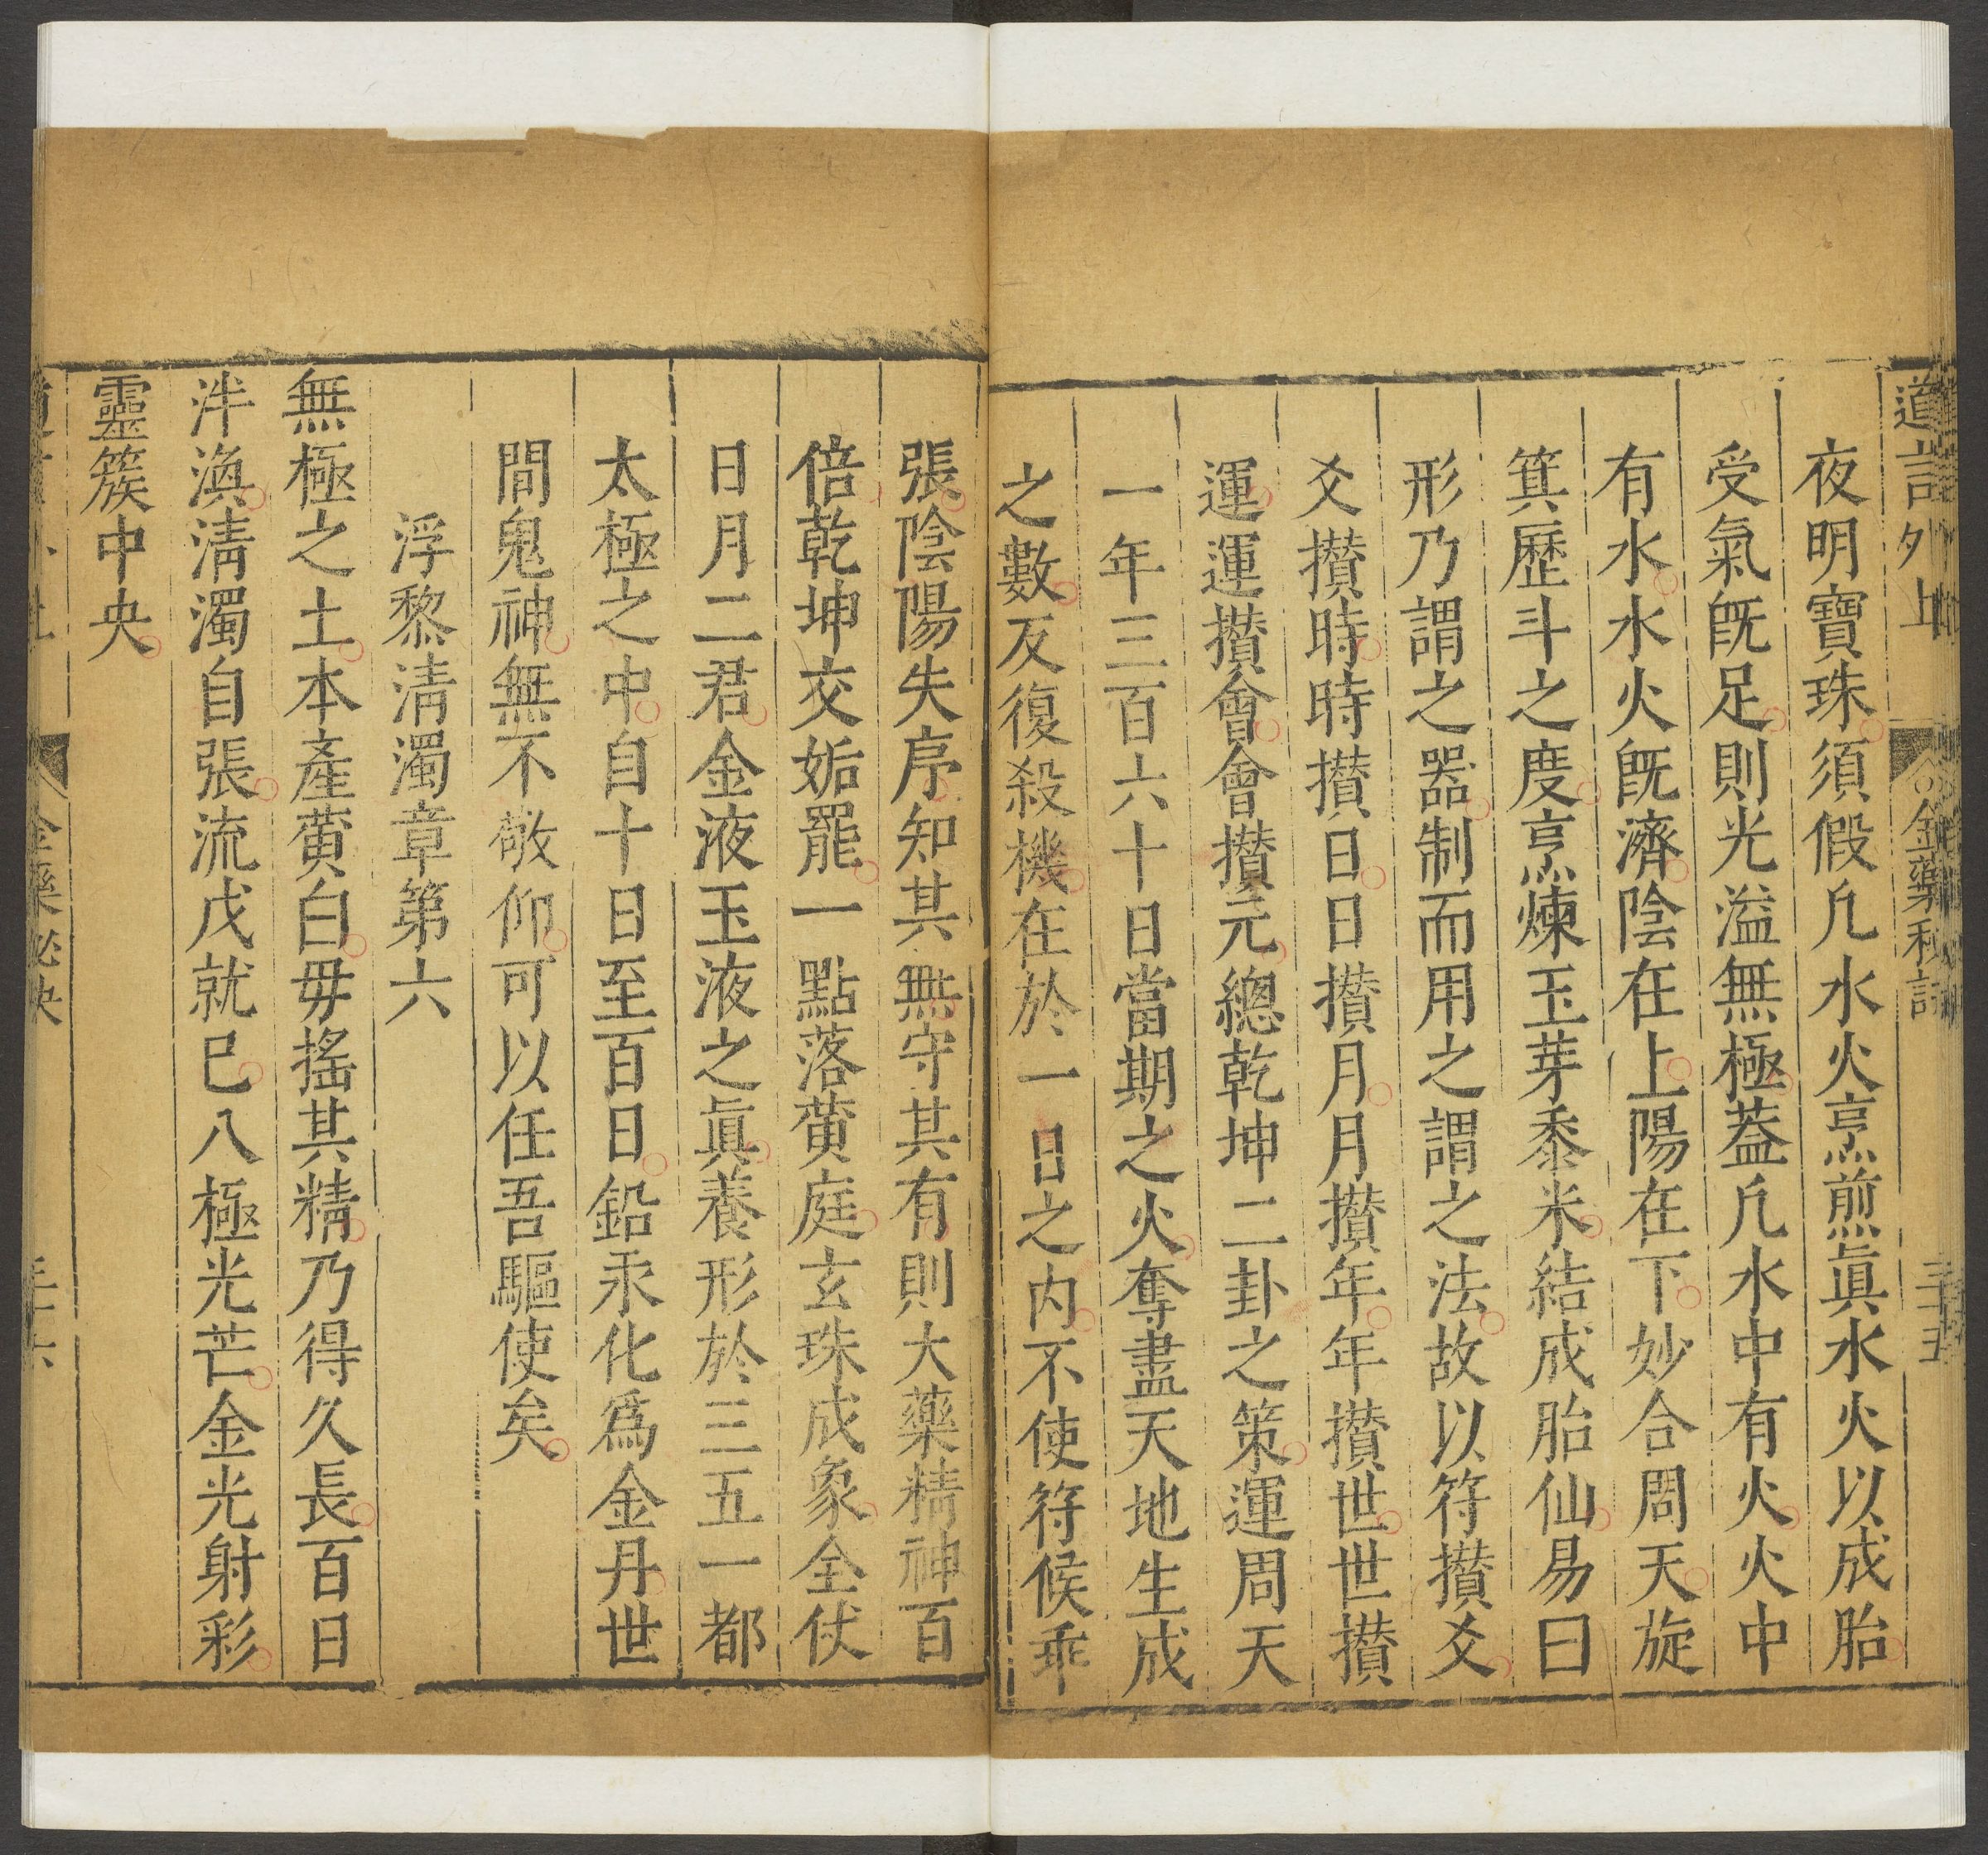 夜明寶珠須假凡水火烹煎眞水火以成胎
受氣旣足則光溢無極蓋凡水中有火火中
有水水火旣濟陰在上陽在下妙合周天旋
箕歷斗之度烹煉玉芽黍米結成胎仙易曰
形乃謂之器制而用之謂之法故以符攅爻
爻攅時時攅日日攅月月攅年年攅世世攅
運運攅會會攅元總乾坤二卦之策運周天
一年三百六十日當期之火奪盡天地生成
之數反復殺機在於一日之内不使符候乖
張陰陽失序知其無守其有則大藥精神百
倍乾坤交姤罷一點落黄庭玄珠成象全伏
日月二君金液玉液之眞養形於三五一都
太極之中自十日至百日鉛汞化爲金丹世
間鬼神無不敬仰可以任吾驅使矣
浮黎淸濁章第六
無極之土本產黄白毋搖其精乃得久長百日
泮渙淸濁自張流戊就巳八極光芒金光射彩
靈簇中央